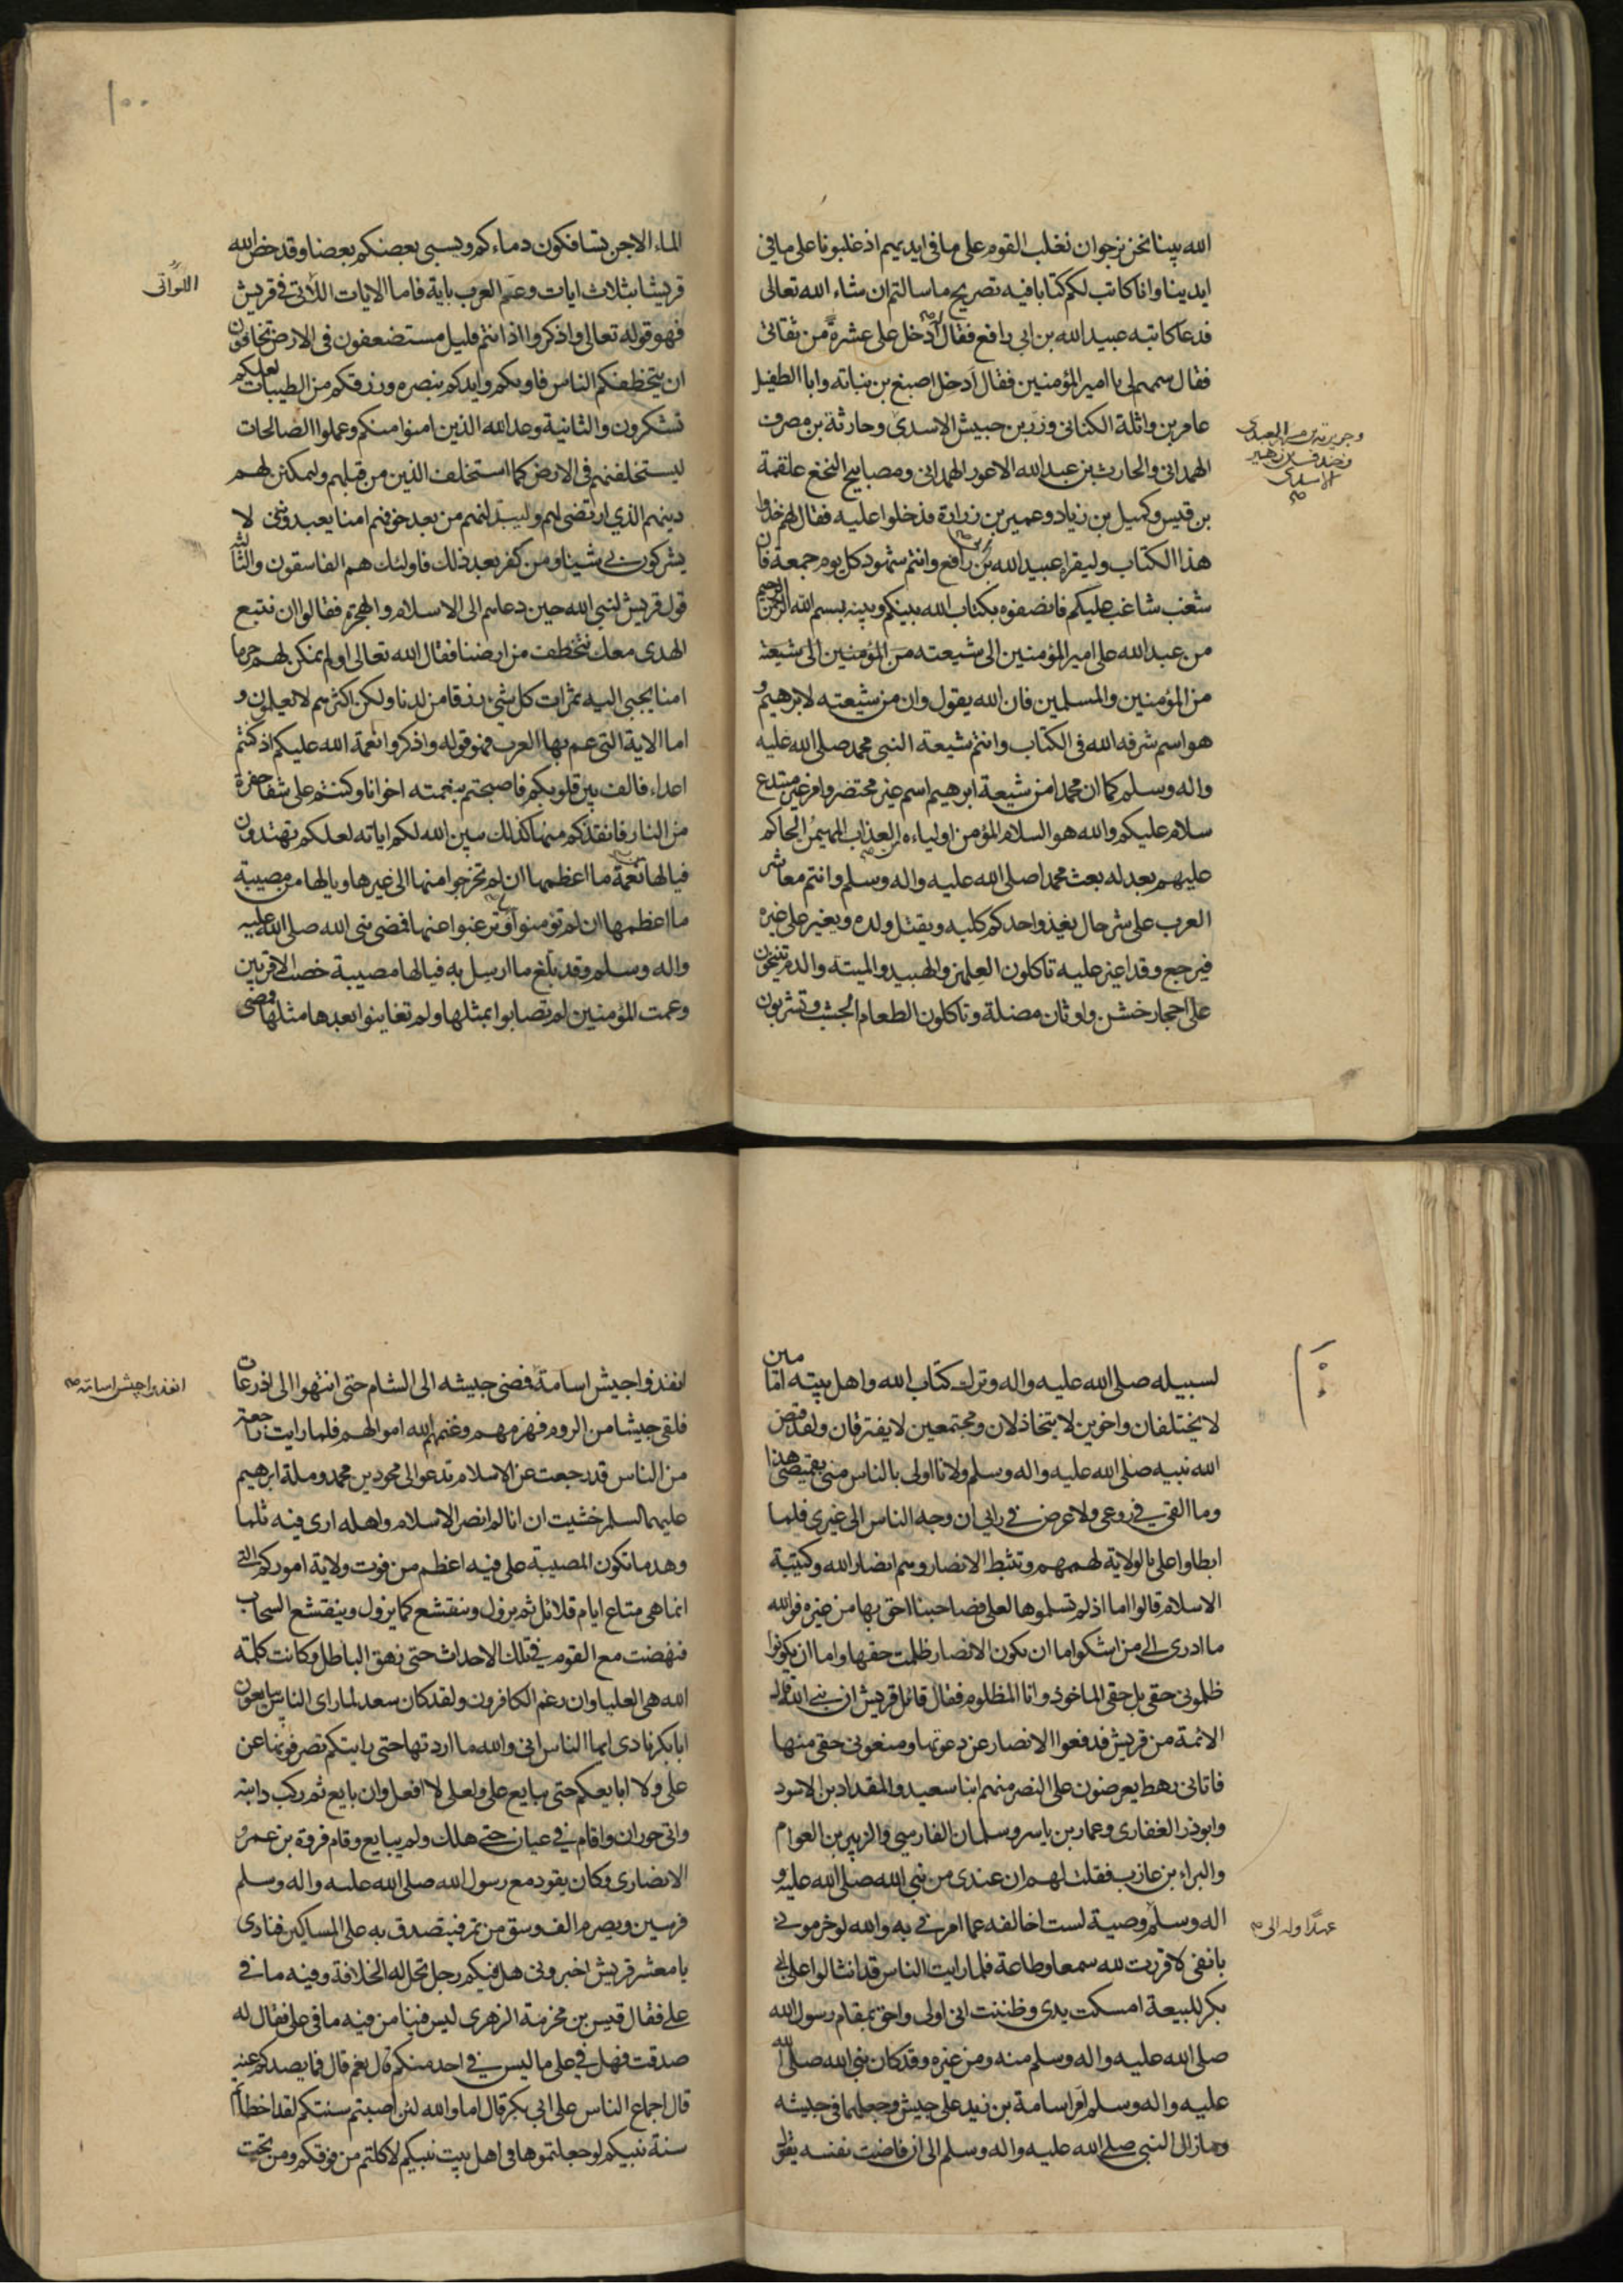 الله بينا نحن نرجوان نغلب القوم على ما فى ايديهم اذ غلبونا على ما فى
ايدينا وانا كاتب لكم كتابا فيه تصريح ما سالتم ان شاء الله تعالى
فدعا كاتبه عبيد الله بن ابى رافع فقال ادخل على عشرة من ثقاتى
فقال سمهم لى يا امير المؤمنين فقال ادخل اصبغ بن نباته وابا الطفيل
عامر بن واثلة الكنانى وزر بن حبيش الاسدى وحارثة بن مصرف
وجويرية بن مسهر العبدى
وخندف بن زهير
الاسدى
الهمدانى والحارث بن عبد الله الاعور الهمدانى ومصابيح النخع علقمة
بن قيس وكميل بن زياد وعمير بن زرارة فدخلوا عليه فقال لهم خذوا
هذا الكتاب وليقراه عبيد الله بن رافع وانتم شهود كل يوم جمعة فان
شغب شاغب عليكم فانصفوه بكتاب الله بينكم وبينه بسم الله الرحمن الرحيم
من عبد الله على امير المؤمنين الى شيعته من المؤمنين الى شيعته
من المؤمنين والمسلمين فان الله يقول وان من شيعته لابرهيم و
هو اسم شرفه الله فى الكتاب وانتم شيعة النبى محمد صلى الله عليه
واله وسلم كما ان محمدا من شيعة ابرهيم اسم غير مختصر وامر غير مبتدع
سلام عليكم والله هو السلام المؤمن اولياءه من العذاب المهيمن الحاكم
عليهم بعدله بعث محمدا صلى الله عليه واله وسلم وانتم معاشر
العرب على شر حال يغذو احدكم كلبه ويقتل ولده ويغير على غيره
فيرجع وقد اغير عليه تاكلون العلهز والهبيد والميتة والدم تنيخون
على احجار خشن واوثان مضلة وتاكلون الطعام الجشب وتشربون
١٠٠
الماء الاجن تسافكون دماءكم ويسبى بعضكم بعضا وقد خص الله
قريشا بثلاث ايات وعم العرب باية فاما الايات اللاتى فى قريش
اللواتى
فهو قوله تعالى واذكروا اذ انتم قليل مستضعفون فى الارض تخافون
ان يتخطفكم الناس فاويكم وايدكم بنصره ورزقكم من الطيبات لعلكم
تشكرون والثانية وعد الله الذين امنوا منكم وعملوا الصالحات
ليستخلفنهم فى الارض كما استخلف الذين من قبلهم وليمكنن لهم
دينهم الذي ارتضى لهم وليبدلنهم من بعد خوفهم امنا يعبدوننى لا
يشركون بى شيئا ومن كفر بعد ذلك فاولئك هم الفاسقون والثالثة
قول قريش لنبى الله حين دعاهم الى الاسلام والهجرة فقالوا ان نتبع
الهدى معك نتخطف من ارضنا فقال الله تعالى اولم نمكن لهم حرما
امنا يجبى اليه ثمرات كل شئ رزقا من لدنا ولكن اكثرهم لا يعلمون و
اما الاية التى عم بها العرب فهو قوله واذكروا نعمة الله عليكم اذ كنتم
اعداء فالف بين قلوبكم فاصبحتم بنعمته اخوانا وكنتم على شفا حفرة
من النار فانقذكم منها كذلك يبين الله لكم اياته لعلكم تهتدون
فيالها نعمة ما اعظمها ان لم تخرجوا منها الى غيرها ويالها من مصيبة
ما اعظمها ان لم تؤمنوا او ترغبوا عنها فمضى نبى الله صلى الله عليه
واله وسلم وقد بلغ ما ارسل به فيالها مصيبة خصت الاقربين
وعمت المؤمنين لم تصابوا بمثلها ولم تعاينوا بعدها مثلها فمضى
١٠١
لسبيله صلى الله عليه واله وترك كتاب الله واهل بيته امامين
لا يختلفان واخوين لا يتخاذلان ومجتمعين لا يفترقان ولقد قبض
الله نبيه صلى الله عليه واله وسلم ولانا اولى بالناس منى بقميصى هذا
وما القى فى روعى ولا عرض فى رايى ان وجه الناس الى غيرى فلما
ابطاوا على بالولاية لهممهم وتثبط الانصار وهم انصار الله وكتيبة
الاسلام قالوا اما اذ لم تسلموها لعلى فصاحبنا احق بها من غيره فوالله
ما ادرى الى من اشكوا ما ان يكون الانصار ظلمت حقها واما ان يكونوا
ظلمونى حقى بل حقى الماخوذ وانا المظلوم فقال قائل قريش ان نبى الله قال
الائمة من قريش فدفعوا الانصار عن دعوتها ومنعونى حقى منها
فاتانى رهط يعرضون على النصر منهم ابنا سعيد والمقداد بن الاسود
وابوذر الغفارى وعمار بن ياسر وسلمان الفارسى والزبير بن العوام
والبراء بن عازب فقلت لهم ان عندى من نبى الله صلى الله عليه و
اله وسلم وصية لست اخالفه عما امرنى به والله لو خزمونى
عهدا وله الى
بانفى لاقررت لله سمعا وطاعة فلما رايت الناس قد انثالوا على ابى
بكر للبيعة امسكت يدى وظننت انى اولى واحق بمقام رسول الله
صلى الله عليه واله وسلم منه ومن غيره وقد كان نبى الله صلى الله
عليه واله وسلم امر اسامة بن زيد على جيش وجعلهما فى جيشه
وما زال النبى صلى الله عليه واله وسلم الى ان فاضت نفسه يقول
انفذوا جيش اسامة فمضى جيشه الى الشام حتى انتهوا الى اذرعات
انفذوا جيش اسامة
فلقى جيشا من الروم فهزمهم وغنمهم الله اموالهم فلما رايت راجعة
من الناس قد رجعت عن الاسلام تدعو الى محو دين محمد وملة ابرهيم
عليهما السلم خشيت ان انا لم انصر الاسلام واهله ارى فيه ثلما
وهدما تكون المصيبة على فيه اعظم من فوت ولاية اموركم التى
انما هى متاع ايام قلائل ثم يزول وينقشع كما يزول وينقشع السحاب
فنهضت مع القوم فى تلك الاحداث حتى زهق الباطل وكانت كلمة
الله هى العليا وان رغم الكافرون ولقد كان سعد لما راى الناس يبايعون
ابا بكر نادى ايها الناس انى والله ما اردتها حتى رايتكم تصرفونها عن
على ولا ابايعكم حتى يبايع على ولعلى لا افعل وان بايع ثم ركب دابته
واتى حوران واقام فى عيان حتى هلك ولم يبايع وقام فروة بن عمرو
الانصارى وكان يقود مع رسول الله صلى الله عليه واله وسلم
فرسين ويصرم الف وسق من تمر فيتصدق به على المساكين فنادى
يا معشر قريش اخبرونى هل فيكم رجل تحل له الخلافة وفيه ما فى
على فقال قيس بن مخرمة الزهرى ليس فينا من فيه ما فى على فقال له
صدقت فهل فى على ما ليس فى احد منكم قال نعم قال فما يصدكم عنه
قال اجماع الناس على ابى بكر قال اما والله لئن اصبتم سنتكم لقد اخطأتم
سنة نبيكم لو جعلتموها فى اهل بيت نبيكم لاكلتم من فوقكم ومن تحت